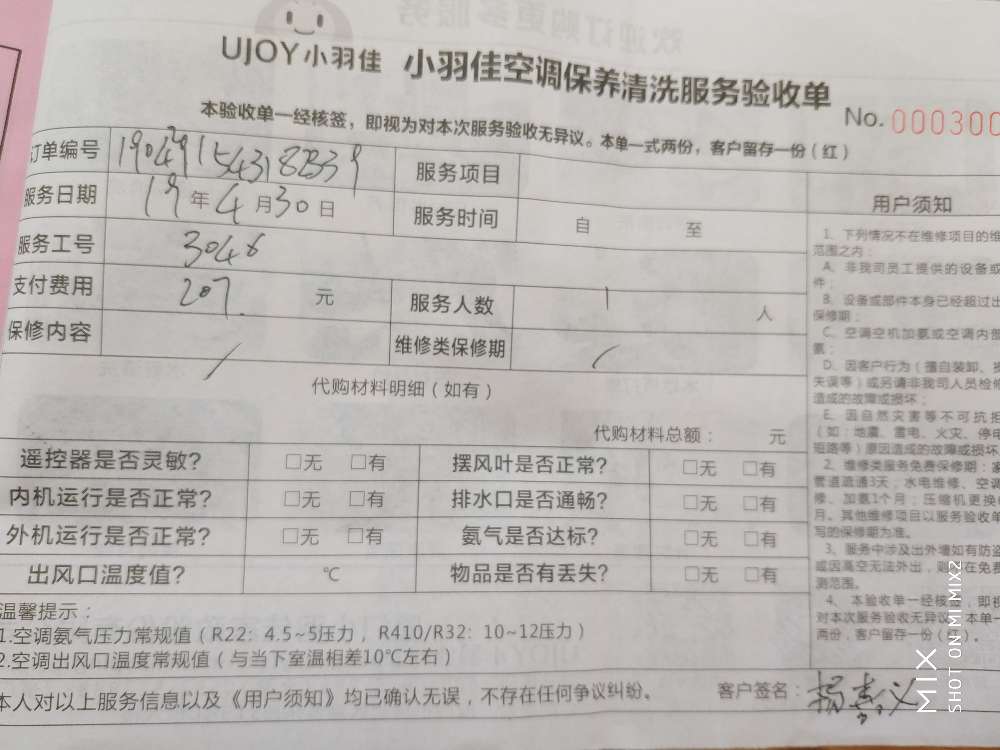 UJOY小羽佳 小羽佳空调保养清洗服务验收单
No. 000300
本验收单一经核签，即视为对本次服务验收无异议。本单一式两份，客户留存一份(红)
订单编号 服务项目
服务日期 19年4月30日 服务时间 自 至
服务工号 3046
支付费用 207. 元 服务人数 1 人
保修内容 / 维修类保修期 /
代购材料明细(如有)
代购材料总额： 元
遥控器是否灵敏? □无 □有 摆风叶是否正常? □无 □有
内机运行是否正常? □无 □有 排水口是否通畅? □无 □有
外机运行是否正常? □无 □有 氨气是否达标? □无 □有
出风口温度值? ℃ 物品是否有丢失? □无 □有
温馨提示：
1.空调氨气压力常规值(R22: 4.5~5压力, R410/R32: 10~12压力)
2.空调出风口温度常规值(与当下室温相差10℃左右)
本人对以上服务信息以及《用户须知》均已确认无误，不存在任何争议纠纷。 客户签名：
用户须知
1、下列情况不在维修项目的维
范围之内：
A、非我司员工提供的设备或
件；
B、设备或部件本身已经超过出
保修期；
C、空调空机加氨或空调内部
氨；
D、因客户行为(擅自装卸、
失误等)或另请非我司人员检修
造成的故障或损坏；
E、因自然灾害等不可抗拒
(如:地震、雷电、火灾、停电
短路等)原因造成的故障或损坏
2、维修类服务免费保修期：
管道疏通3天，水电维修、空调
修、加氨1个月；压缩机更换
月。其他维修项目以服务验收单
写的保修期为准。
3、服务中涉及出外墙如有防盗
或因高空无法外出，则 在免费
测范围。
4、本验收单一经核签，即视
对本次服务验收无异议。本单一
两份，客户留存一份(红)。
MIX
SHOT ON MI MIX2